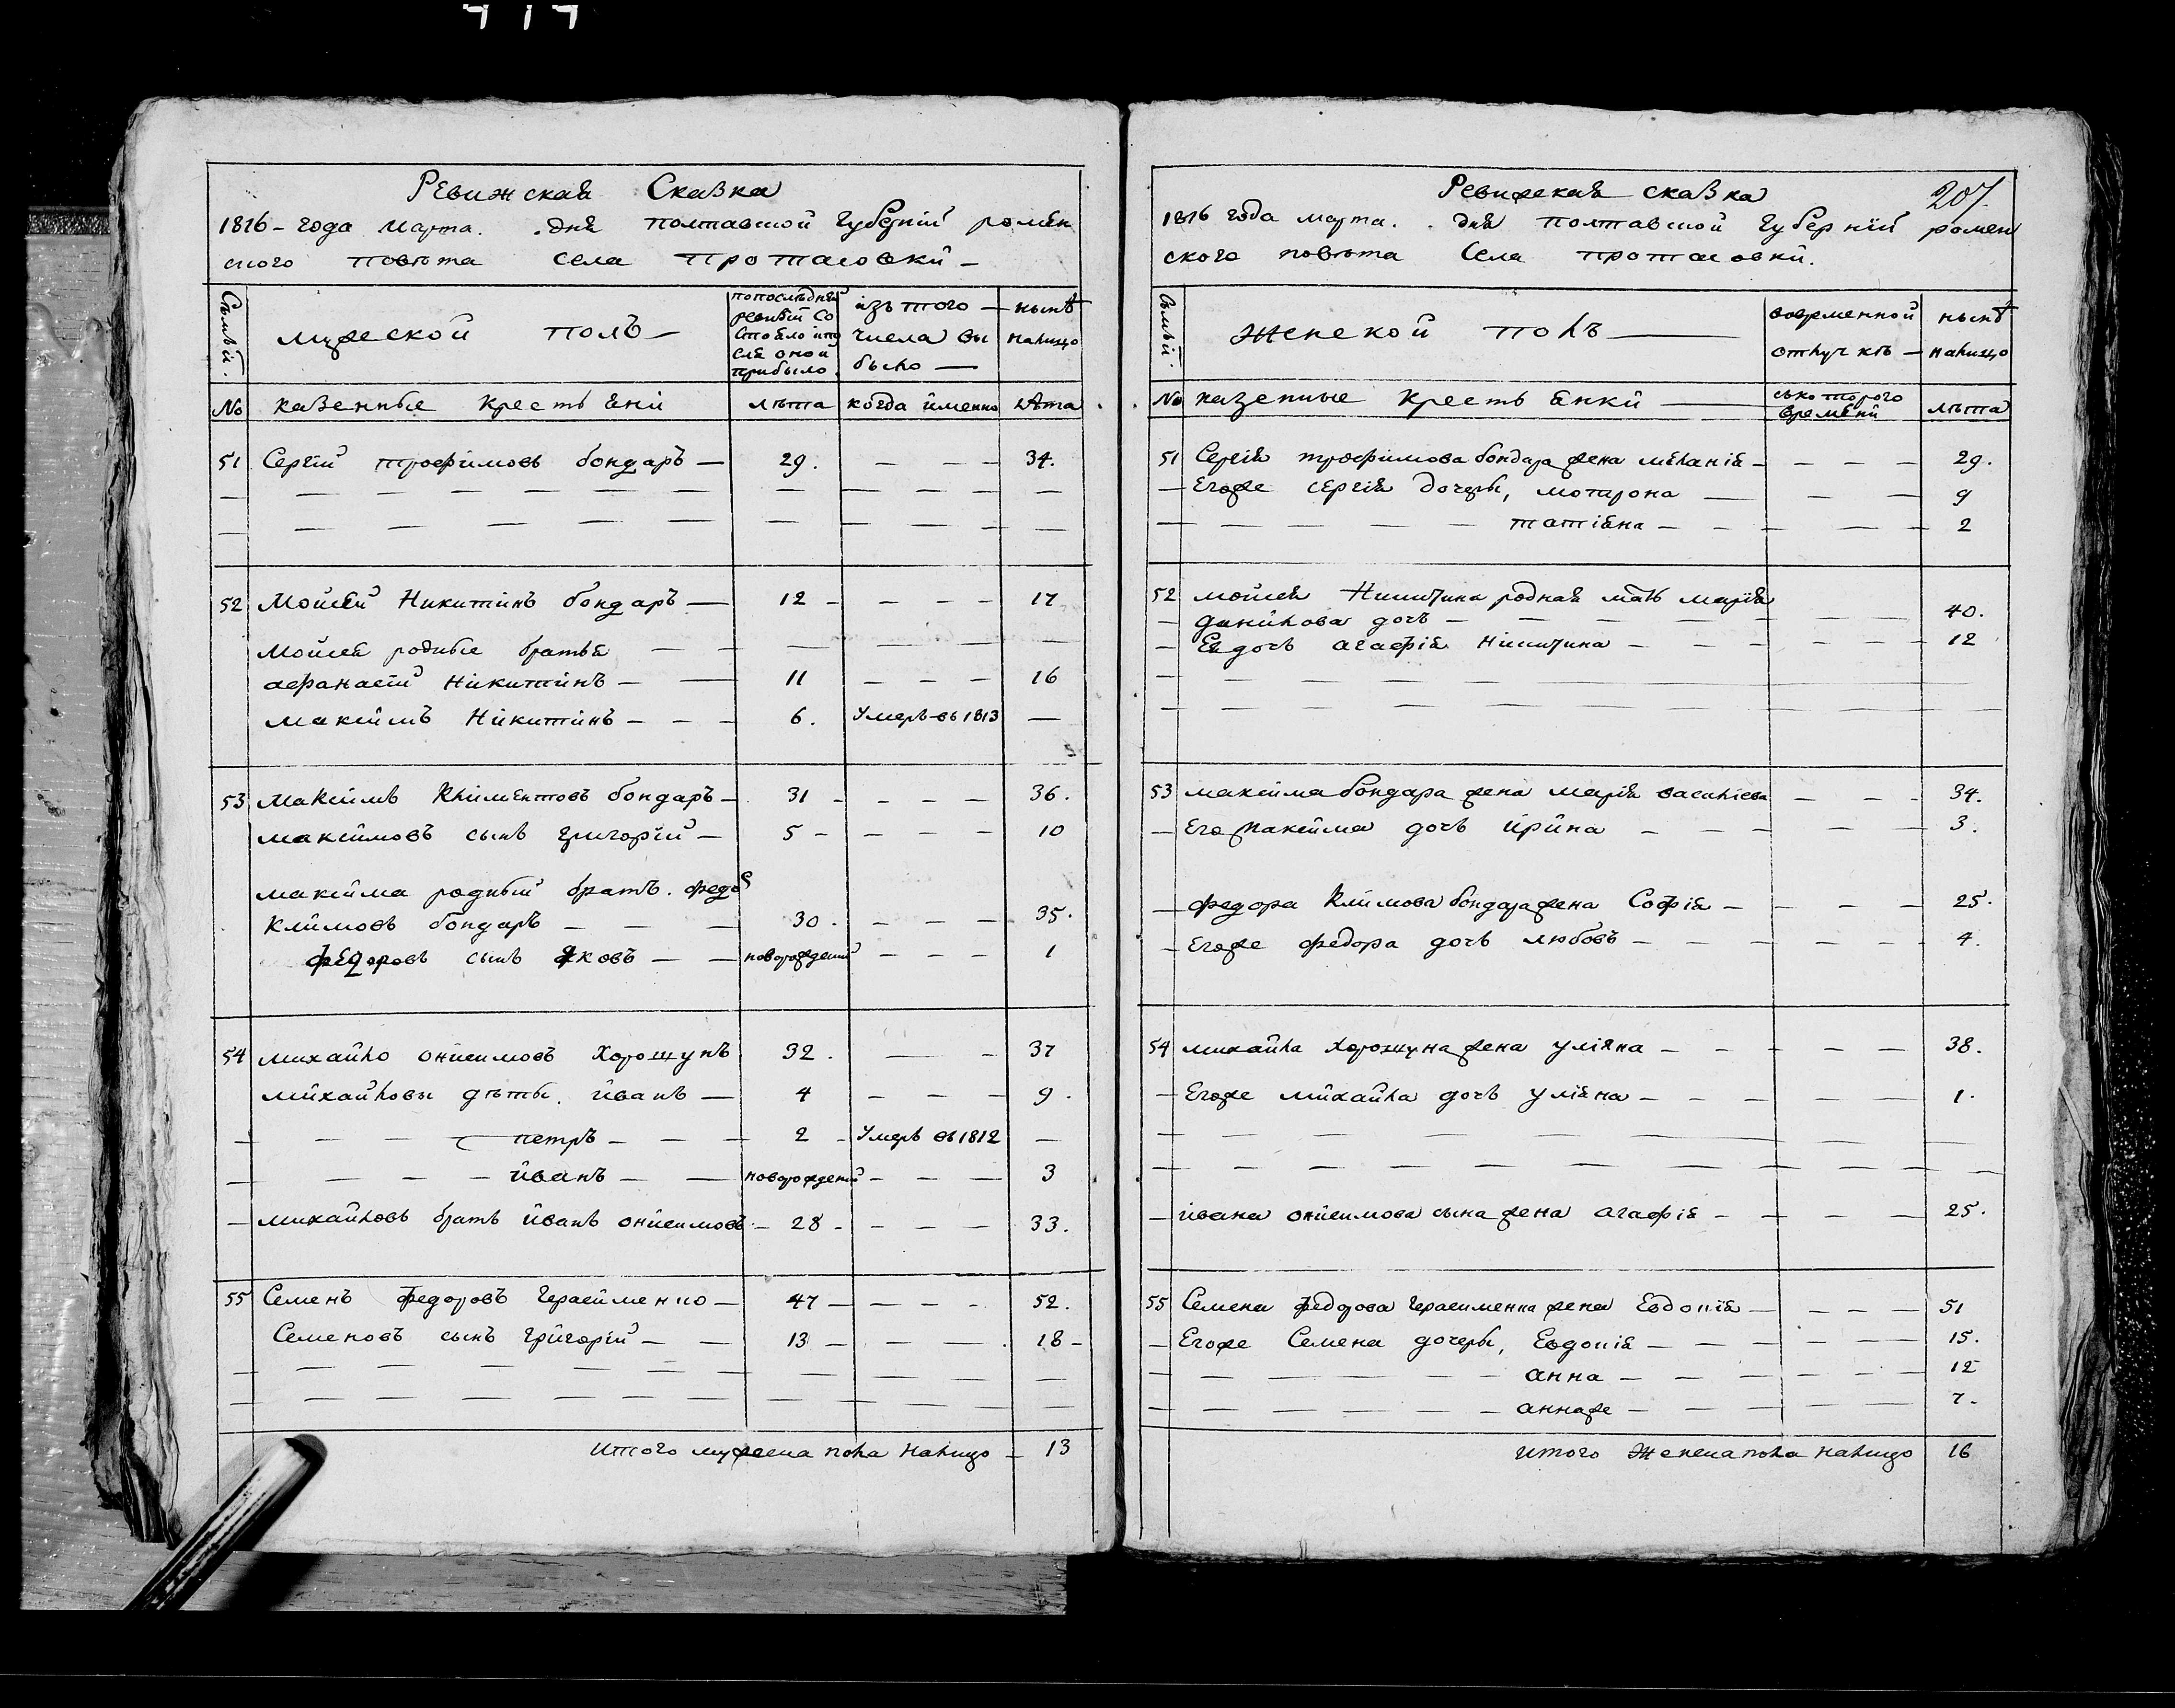 Ревижская Сказка
1816 – года марта . . дня полтавской губерній ромен
ского повѣта села протасовки –
Сѣмьй.
мужеской полъ –
попослѣдней ревизій состояло ипосля оной прибыло.
изъ того числа выбыло —
нынѣ налицо
№ казенные крестьяни
лѣта
когда именно
лѣта
51 Сергій трофимовъ бондаръ — 29. — — — 34.
52 Мойсей Никитинъ бондаръ — 12 – — — — 17
Мойсея родные братья — —
афанасій Никитинъ — — 11 — — — 16
максимъ Никитинъ — — — 6. Умеръ въ 1813 —
53 максимъ Климентовъ бондаръ — 31 – — — — 36.
максимовъ сынъ григорій — 5 – — — — 10
максима родный братъ. федоръ
климовъ бондаръ — — — 30. — — — 35.
федоровъ сынъ яковъ — — новорожденій — — — 1
54 михайло онисимовъ Хорошунъ 32. — – 37
михайловы дѣты. иванъ — 4 — — — 9.
— — — петръ — — — 2 – Умеръ въ 1812 —
— — — — иванъ — — новорожденій — — — 3
— михайловъ братъ иванъ онисимовъ – 28 – — — — 33.
55 Семенъ федоровъ герасименко — 47 — — — – 52.
Семеновъ сынъ григорій — — 13 – — — . 18 –
итого мужеска пола налицо – 13
Ревижская сказка 207.
1816 года марта . . дня полтавской губерній ромен
ского повѣта Села протасовки.
Сѣмьй.
женской полъ —
вовременной отлучкѣ —
нынѣ налицо
№ казенные крестьянки —
скоторого времени
лѣта
51 Сергія трофимова бондара жена меланія – — — — 29.
— Егоже сергія дочеры, мотрона — — — 9
— — — — — татіяна — — — — — 2
52 мойсея Никитина родная мать марія
— данилова дочь — — — — — — — 40.
— Ея дочь агафія Никитина — — — — — — 12
53 максима бондара жена марія василіева — — - 34.
— Его максима дочь ирина — — — — — 3.
— федора климова бондара жена Софія — — — — 25.
— Егоже федора дочь любовъ — — — — — — 4.
54 михайла хорошуна жена уліяна — — — — — 38.
— Егоже михайла дочь уліяна — — — — — — 1.
— ивана онисимова сына жена агафія — — — — 25.
55 Семена федорова герасименка жена Евдокія — — — — 51
— Егоже Семена дочеры, Евдокія — — — — — — 15.
— — — — — — анна — — — — — — — 12
— — — — — — аннаже — — — — — 7.
итого женска пола налицо 16